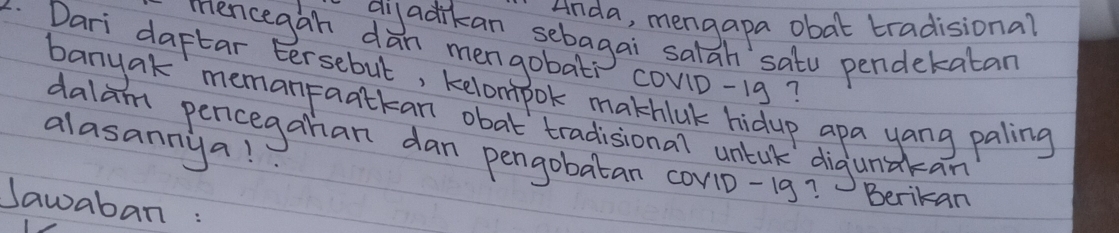 Anda, mengapa obat tradisional
dijadikan sebagai salah satu pendekatan
mencegah dan mengobati COVID-19?
2. Dari daftar tersebut, kelompok makhluk hidup apa yang paling
banyak memanfaatkan obat tradisional untuk digunakan
dalam pencegahan dan pengobatan COVID-19? Berikan
alasannya!
Jawaban :